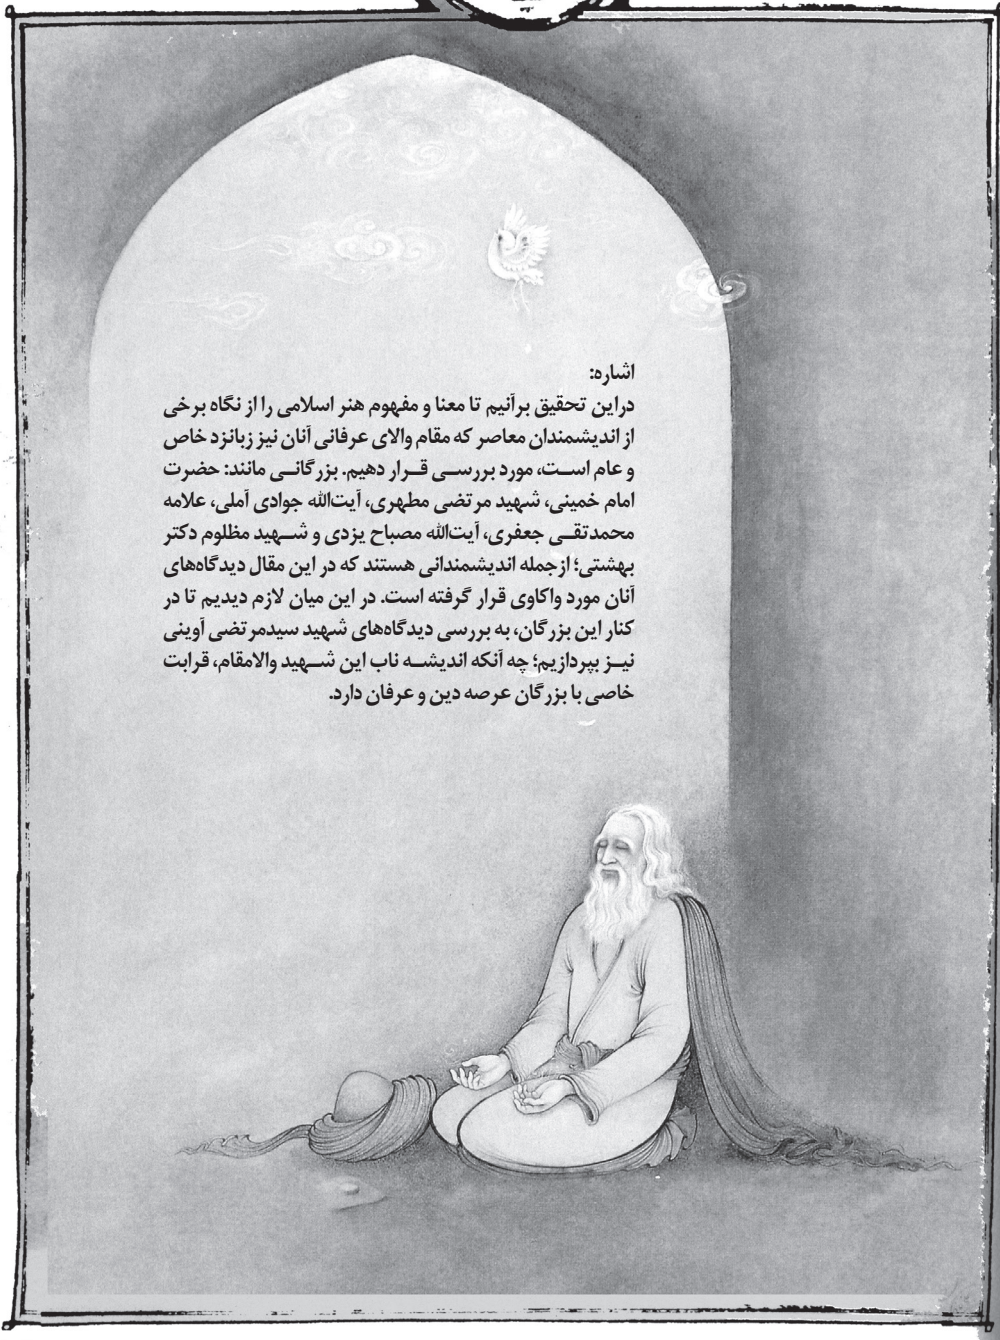 اشاره:
در این تحقیق برآنیم تا معنا و مفهوم هنر اسلامی را از نگاه برخی
از اندیشمندان معاصر که مقام والای عرفانی آنان نیز زبانزد خاص
و عام است، مورد بررسی قرار دهیم. بزرگانی مانند: حضرت
امام خمینی، شهید مرتضی مطهری، آیت‌الله جوادی آملی، علامه
محمدتقی جعفری، آیت‌الله مصباح یزدی و شهید مظلوم دکتر
بهشتی؛ ازجمله اندیشمندانی هستند که در این مقال دیدگاه‌های
آنان مورد واکاوی قرار گرفته است. در این میان لازم دیدیم تا در
کنار این بزرگان، به بررسی دیدگاه‌های شهید سیدمرتضی آوینی
نیز بپردازیم؛ چه آنکه اندیشه ناب این شهید والامقام، قرابت
خاصی با بزرگان عرصه دین و عرفان دارد.